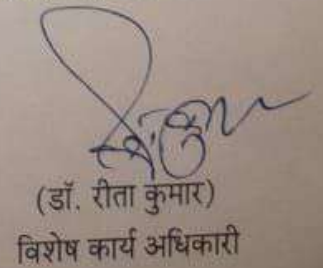 (डॉ. रीता कुमार)
विशेष कार्य अधिकारी